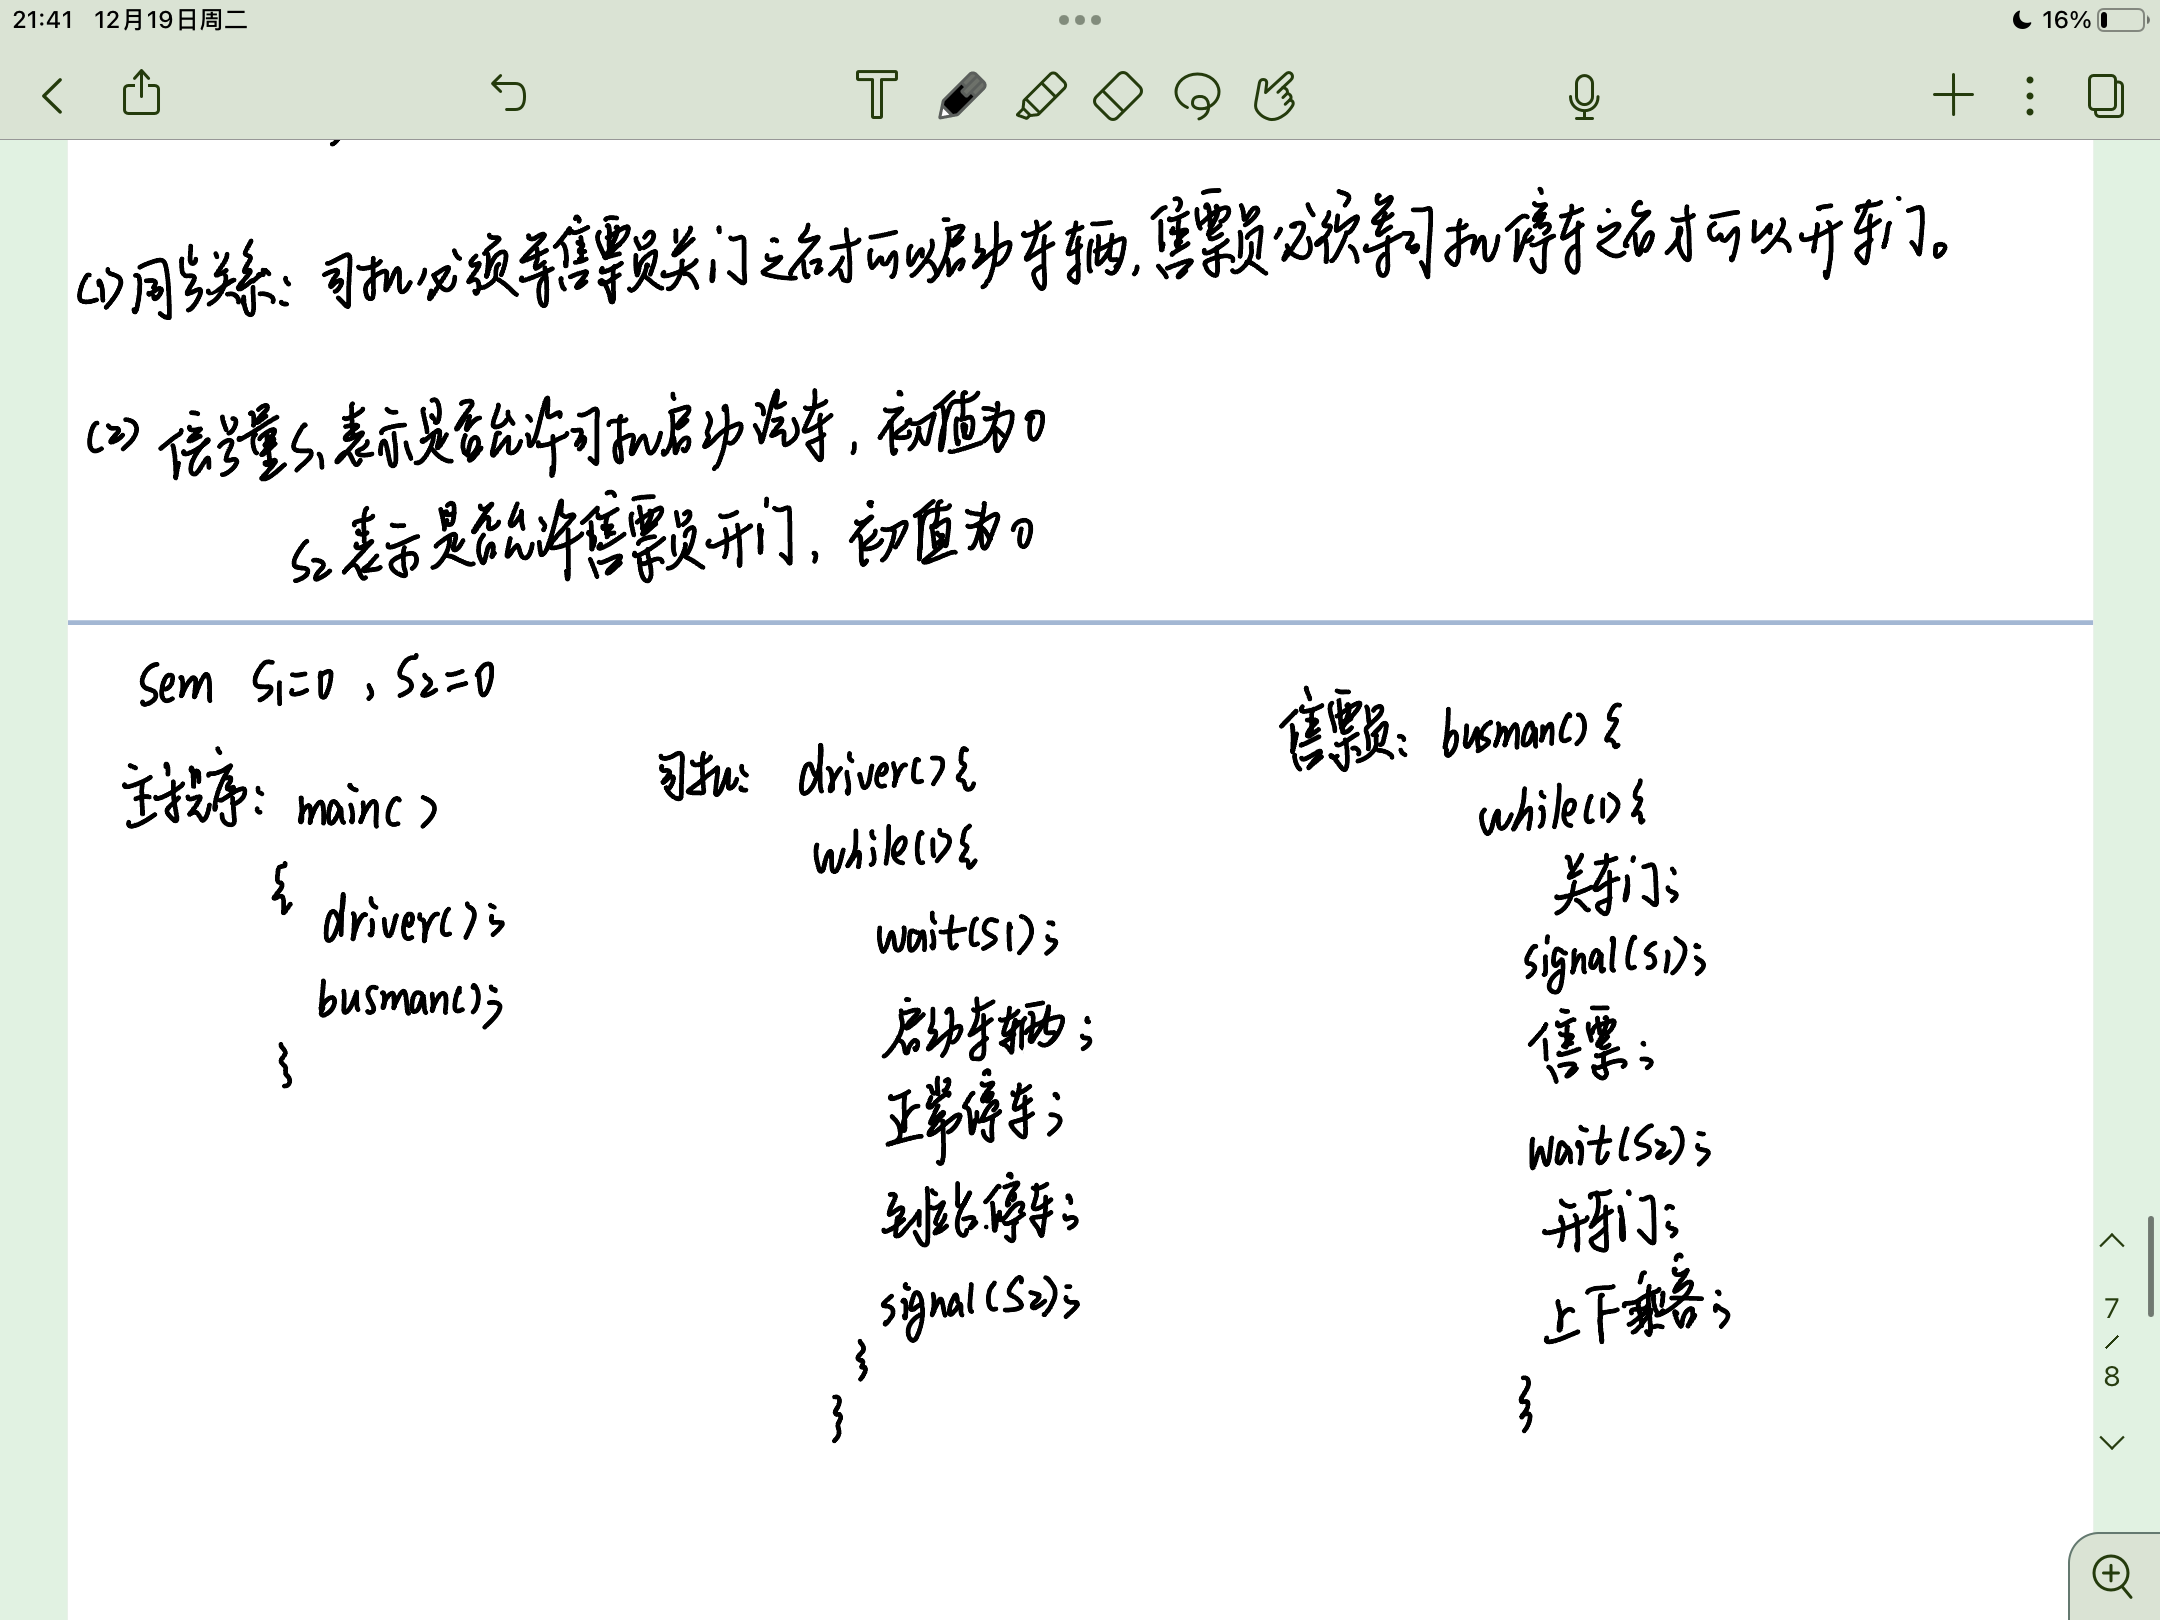 21:41 12月19日周二
16%
(1)同步关系：司机必须等售票员关门之后才可以启动车辆，售票员必须等司机停车之后才可以开车门。
(2) 信号量S1表示是否允许司机启动汽车，初值为0
S2表示是否允许售票员开门，初值为0
Sem S1=0，S2=0
主程序：main()
{
driver();
busman();
}
司机：driver(){
while(1){
wait(S1);
启动车辆；
正常停车；
到站停车；
signal(S2);
}
}
售票员：busman(){
while(1){
关车门；
signal(S1);
售票；
wait(S2);
开车门；
上下乘客；
}
7
/
8